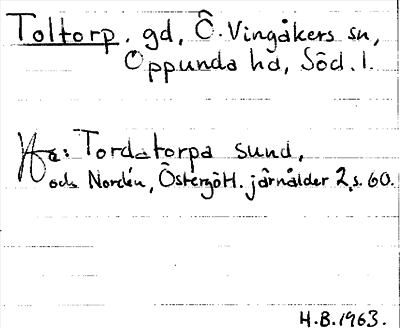 Toltorp. gd, Ö. Vingåkers sn,
Oppunda hd, Söd. l.
Tordatorpa sund,
och Nordén, Östergötl. järnålder 2, s. 60.
H.B. 1963.